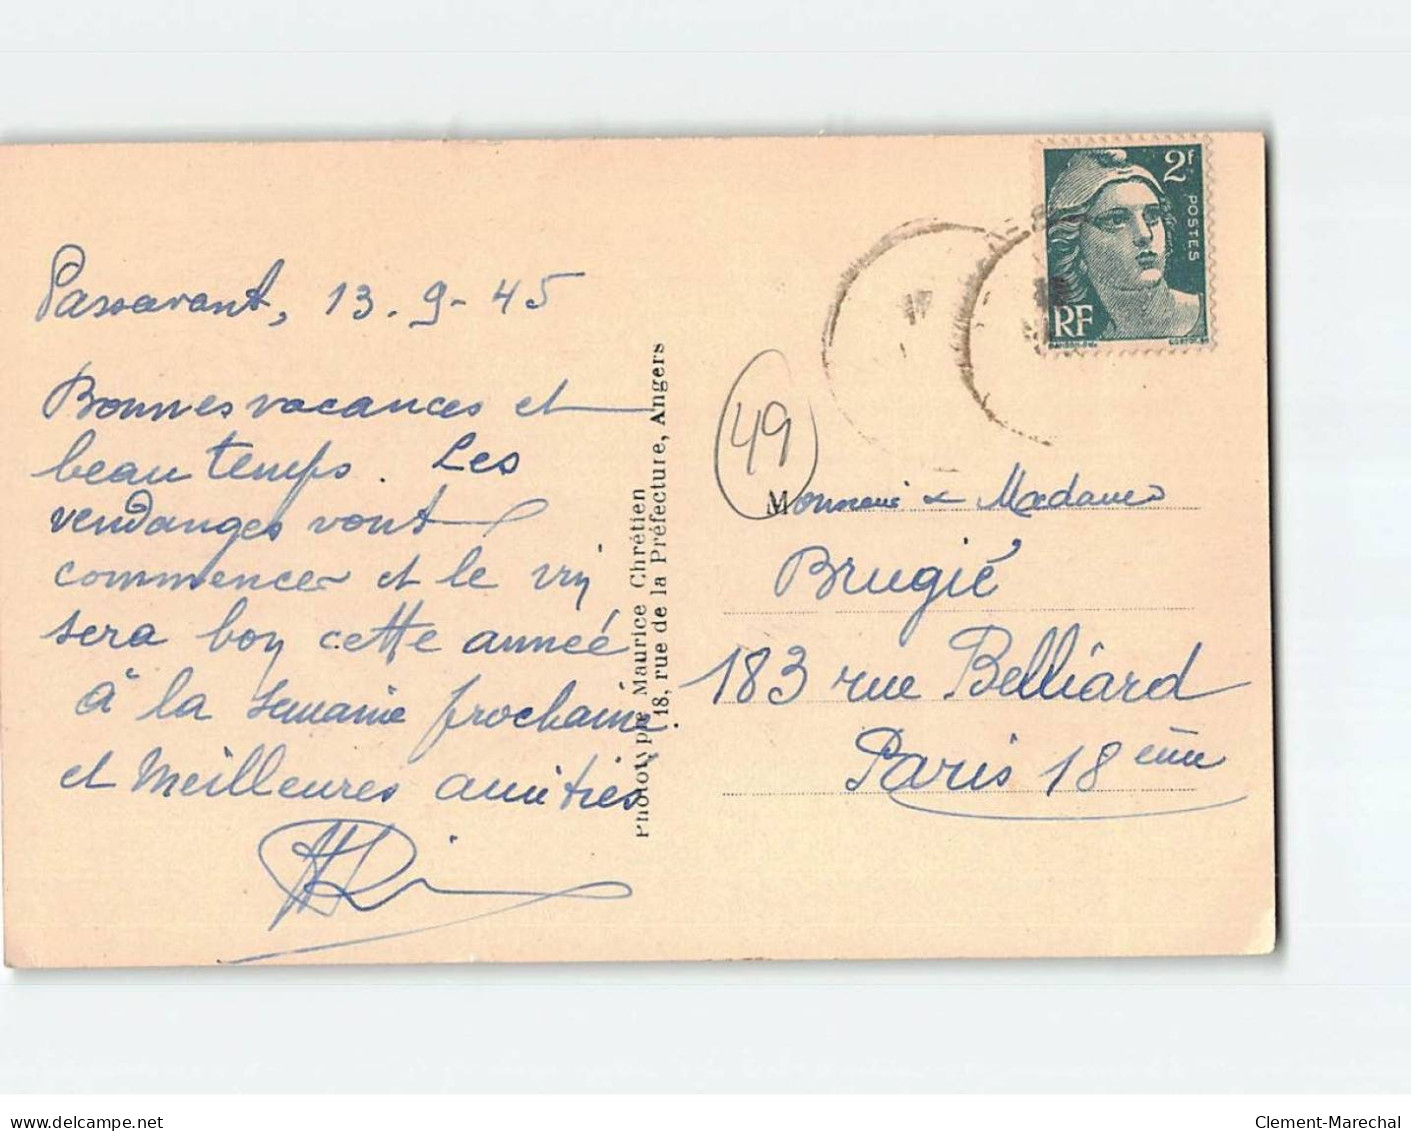 Passavant, 13. 9- 45
Bonnes vacances et
beau temps. Les
vendanges vont
commencer et le vin
sera bon cette année
à la semaine prochaine
et meilleures amitiés
Phototypie Maurice Chrétien
18, rue de la Préfecture, Angers
2F
POSTES
RF
49
Monsieur & Madame
Brugié
183 rue Belliard
Paris 18ème
delcampe.net
Clement-Marechal